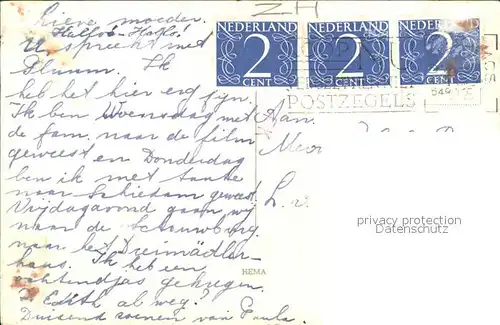 lieve moeder.
Hallo! Hallo!
U spreekt met
Pluum. Ik
heb het hier erg fijn.
Ik ben Woensdag met
de fam. naar de film
geweest en Donderdag
ben ik met tante
naar Schiedam geweest.
Vrijdagavond gaan wij
naar de Schouwburg
naar het Dreimädler-
haus. Ik heb een
ochtendjas gekregen.
Is Edith al weg?
Duizend zoenen van Paula
ZH
NEDERLAND
2
CENT
NEDERLAND
2
CENT
NEDERLAND
2
CENT
POSTZEGELS
Aan
Mevr
L. v.
privacy protection
Datenschutz
HEMA